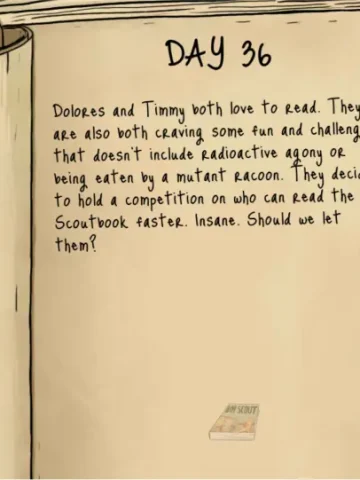 DAY 36
Dolores and Timmy both love to read. They
are also both craving some fun and challeng
that doesn't include radioactive agony or
being eaten by a mutant racoon. They deci
to hold a competition on who can read the
Scoutbook faster. Insane. Should we let
them?
SCOUT